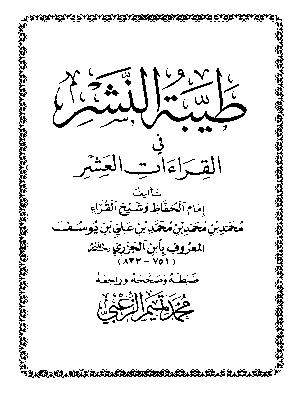 طَيِّبَةُ النَّشْرِ
فِي
القِرَاءَاتِ العَشْرِ
تأليف
إمَامِ الحُفَّاظِ وَشَيْخِ القُرَّاءِ
مُحَمَّدِ بْنِ مُحَمَّدِ بْنِ مُحَمَّدِ بْنِ عَلِيِّ بْنِ يُوسُفَ
المَعْرُوفِ بِابْنِ الجَزَرِيِّ
(٧٥١ - ٨٣٣)
ضَبَطَهُ وَصَحَّحَهُ وَرَاجَعَهُ
مُحَمَّد تَمِيم الزُّعْبِي